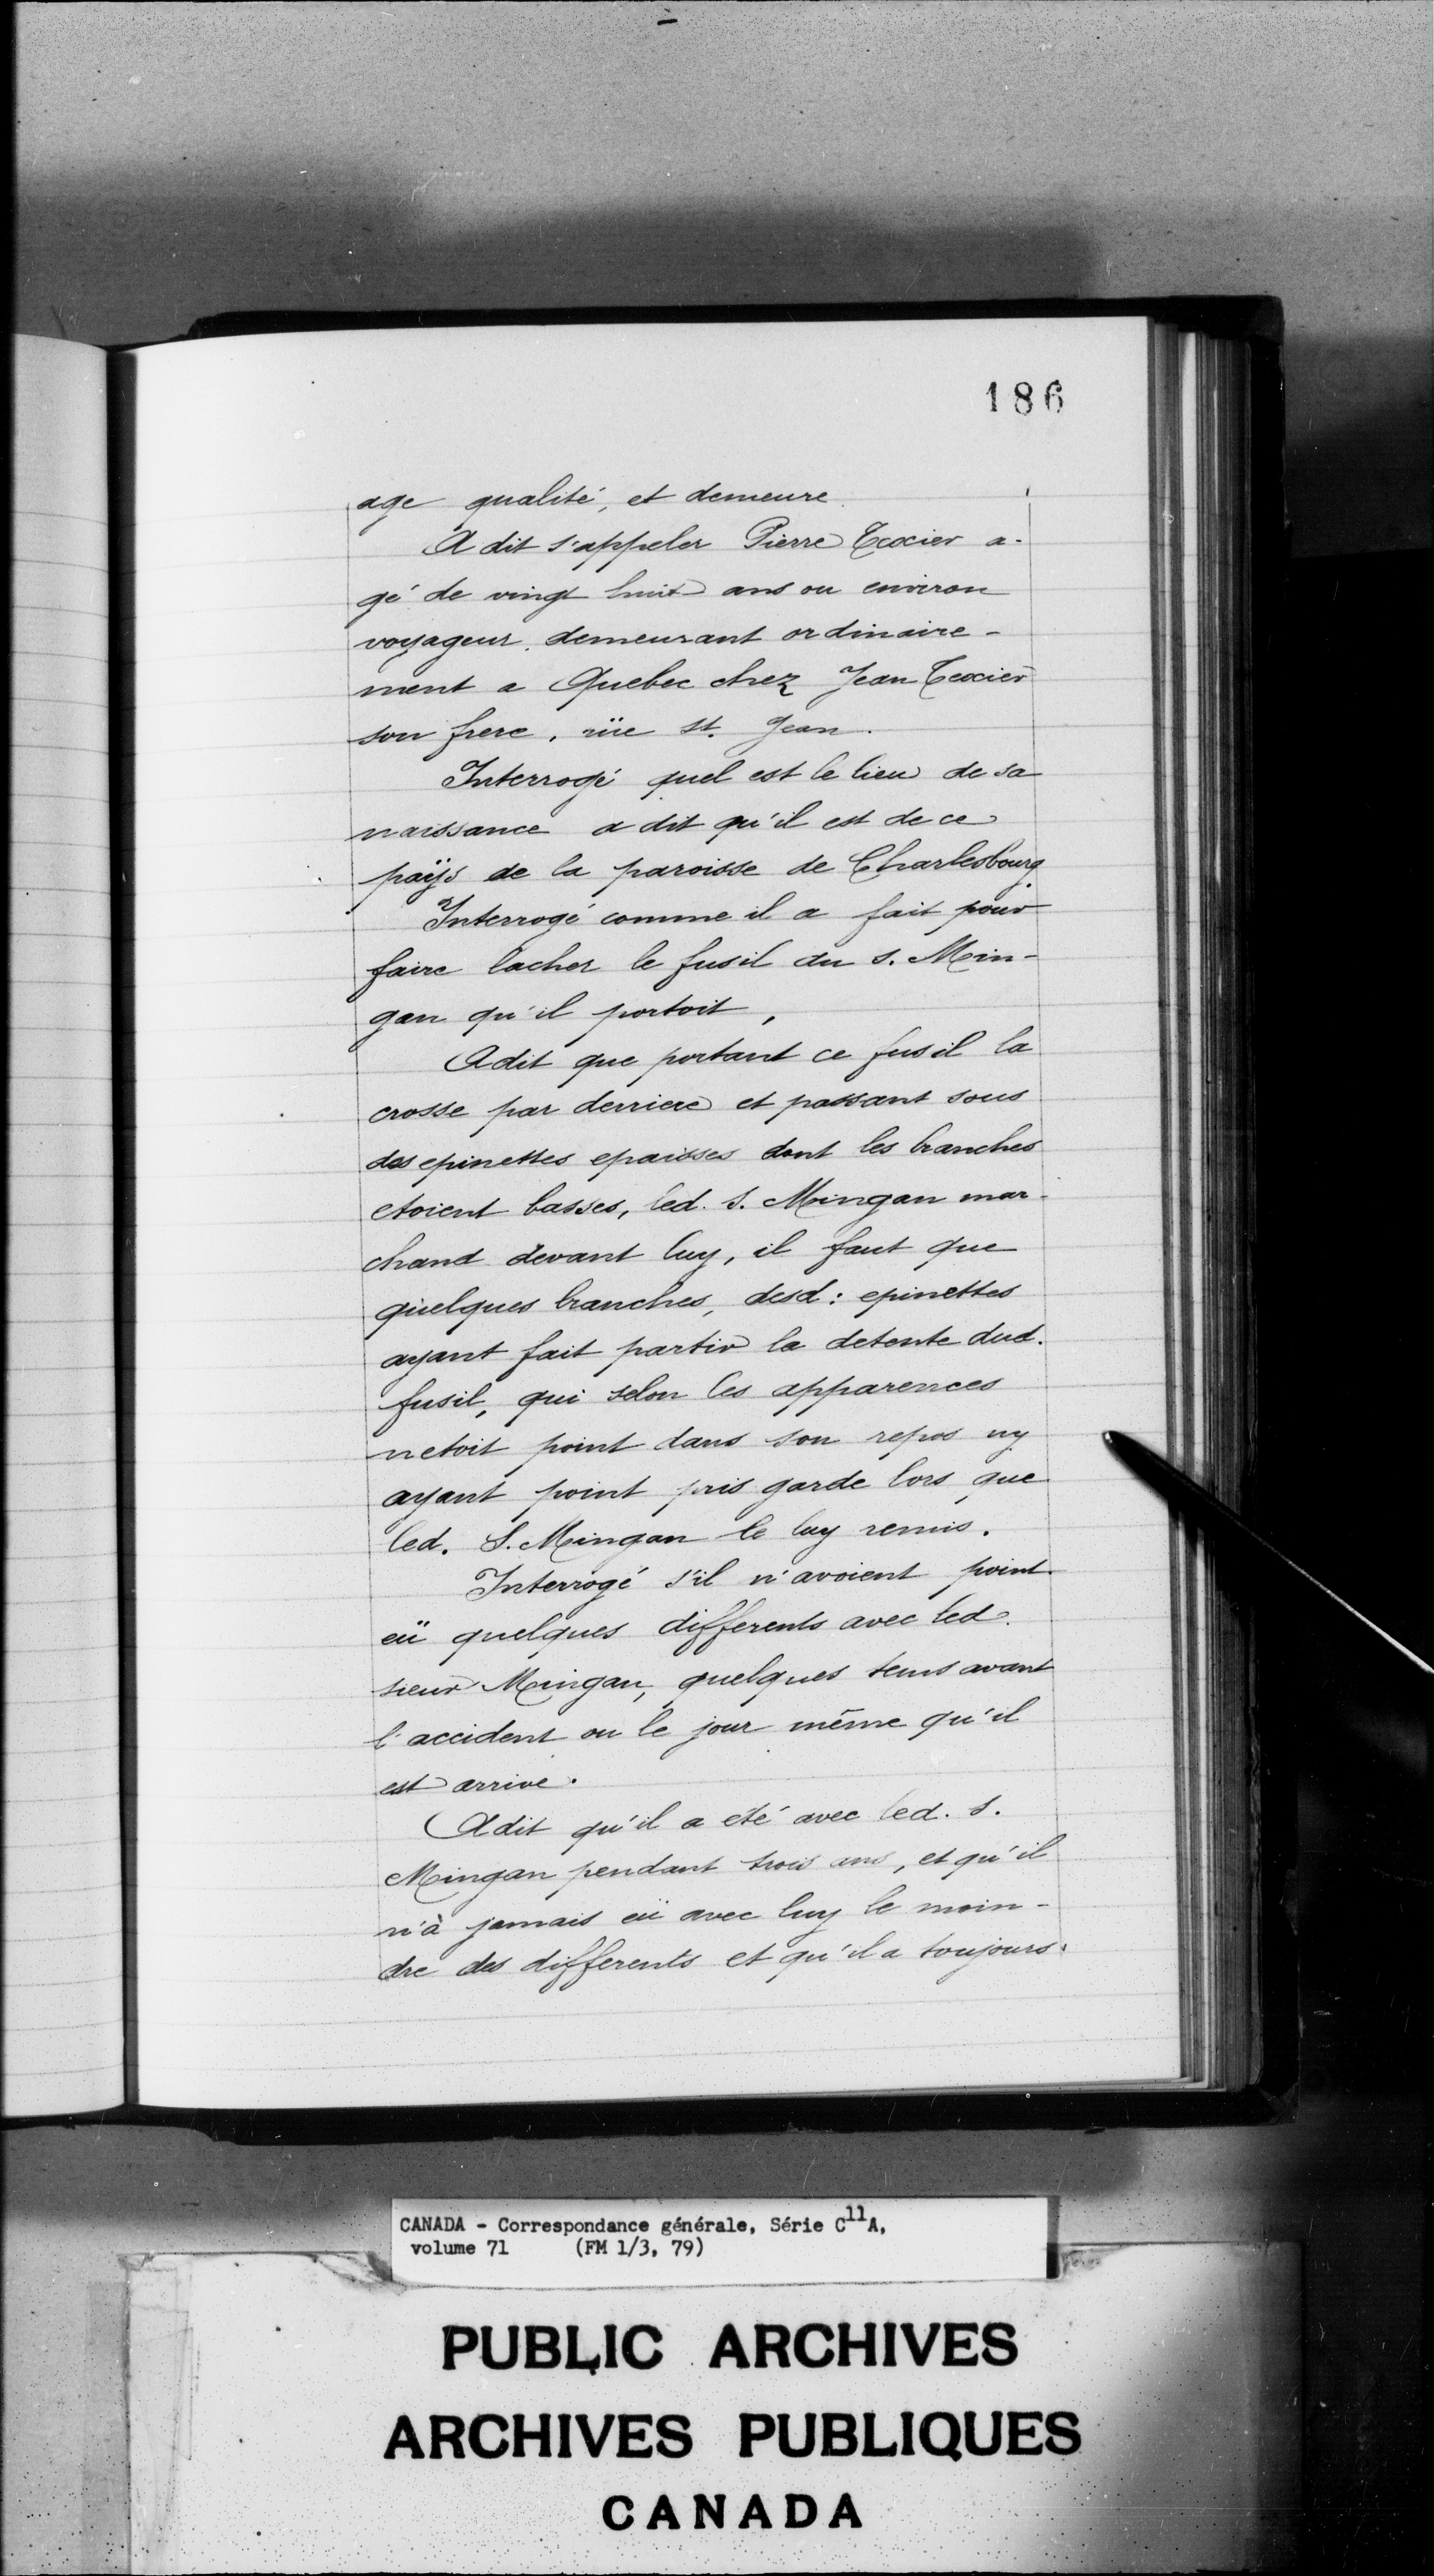 186
age qualité, et demeure.
A dit s'appeler Pierre Texier a-
gé de vingt huit ans ou environ
voyageur, demeurant ordinaire-
ment a Quebec chez Jean Texier
son frere, rüe st. Jean.
Interrogé quel est le lieu de sa
naissance a dit qu'il est de ce
païjs de la paroisse de Charlesbourg
Interrogé comme il a fait pour
faire lacher le fusil du s. Min-
gan qu'il portoit,
A dit que portant ce fusil la
crosse par derriere et passant sous
des epinettes epaisses dont les branches
etoient basses, led. s. Mingan mar-
chand devant luy, il faut que
quelques branches, desd: epinettes
ayant fait partir la detente dud.
fusil, qui selon les apparences
netoit point dans son repos ny
ayant point pris garde lors que
led. S. Mingan le luy remis.
Interrogé s'il n'avoient point
eü quelques differents avec led.
sieur Mingan, quelques tems avant
l'accident ou le jour même qu'il
est arrive.
A dit qu'il a eté avec led. s.
Mingan pendant trois ans, et qu'il
n'à jamais eü avec luy le moin-
dre des differents et qu'il a toujours
CANADA - Correspondance générale, Série C11A,
volume 71 (FM 1/3, 79)
PUBLIC ARCHIVES
ARCHIVES PUBLIQUES
CANADA